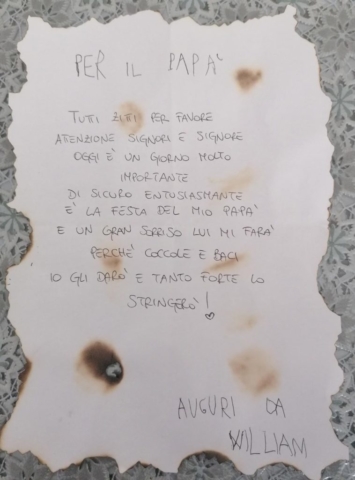 PER IL PAPA'
TUTTI ZITTI PER FAVORE
ATTENZIONE SIGNORI E SIGNORE
OGGI È UN GIORNO MOLTO
IMPORTANTE
DI SICURO ENTUSIASMANTE
E' LA FESTA DEL MIO PAPA'
E UN GRAN SORRISO LUI MI FARA'
PERCHE' COCCOLE E BACI
IO GLI DARO' E TANTO FORTE LO
STRINGERO'!
AUGURI DA
WILLIAM